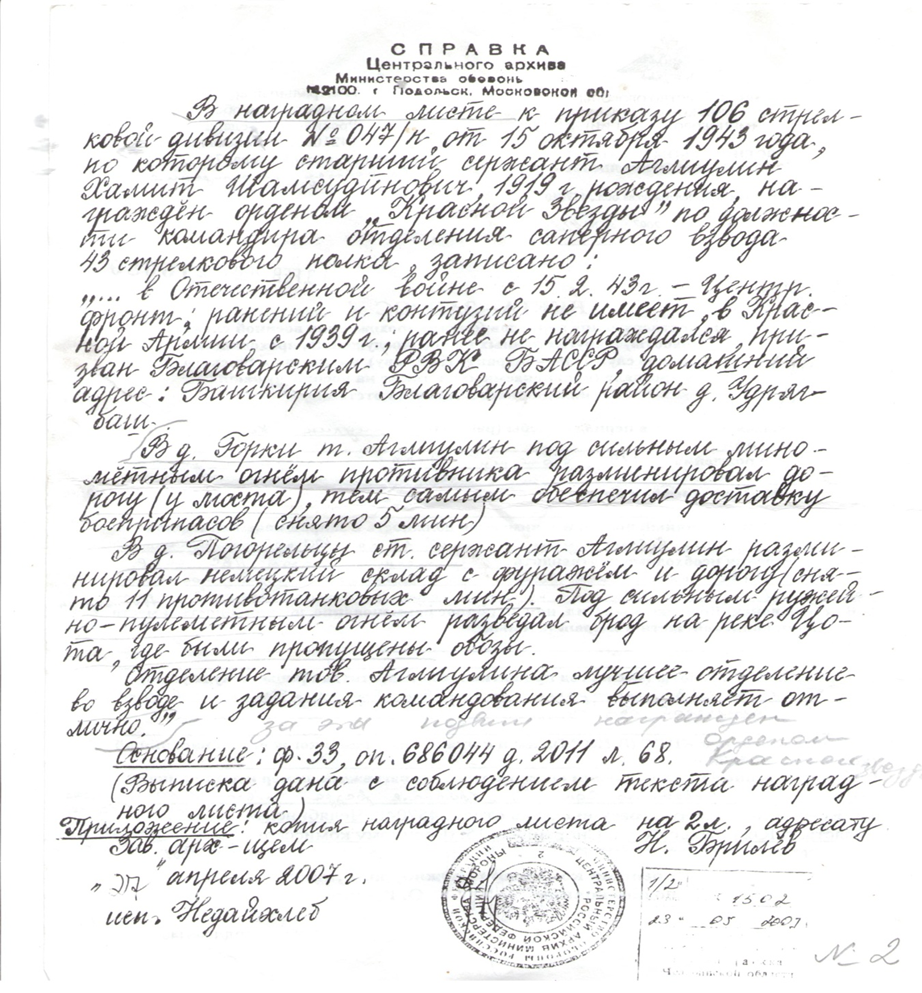 СПРАВКА
Центрального архива
Министерства обороны
г Подольск, Московской обл
В наградном листе к приказу 106 стрел-
ковой дивизии № 047/н, от 15 октября 1943 года,
по которому старший сержант Аглиулин
Хамит Шамсудинович, 1919 г. рождения, на-
граждён орденом „Красной Звезды" по должнос-
ти командира отделения саперного взвода
43 стрелкового полка, записано:
„... в Отечественной войне с 15.2.43г. - Центр.
фронт; ранений и контузий не имеет, в Крас-
ной Армии с 1939 г.; ранее не награждался, при-
зван Благоварским РВК БАССР, домашний
адрес: Башкирия Благоварский район д. Удряк-
баш.
В д. Горки т. Аглиулин под сильным мино-
мётным огнём противника разминировал до-
рогу (у моста), тем самым обеспечил доставку
боеприпасов (снято 5 мин)
В д. Погорельцы ст. сержант Аглиулин разми-
нировал немецкий склад с фуражём и дорогу (сня-
то 11 противотанковых мин). Под сильным ружей-
но-пулеметным огнём разведал брод на реке Цо-
та, где были пропущены обозы.
Отделение тов. Аглиулина лучшее отделение
во взводе и задания командования выполняет от-
лично."
за эти подвиги награжден
орденом
Красной звезды
Основание: ф. 33, оп. 686044 д. 2011 л. 68.
(Выписка дана с соблюдением текста наград-
ного листа)
Приложение: копия наградного листа на 2л., адресату
Зав. арх-щем Н. Брилёв
" апреля 2007 г.
исп. Недайхлеб
ЦЕНТРАЛЬНЫЙ АРХИВ МИНИСТЕРСТВА ОБОРОНЫ РОССИЙСКОЙ ФЕДЕРАЦИИ
1502
23 05 2007
№ 2